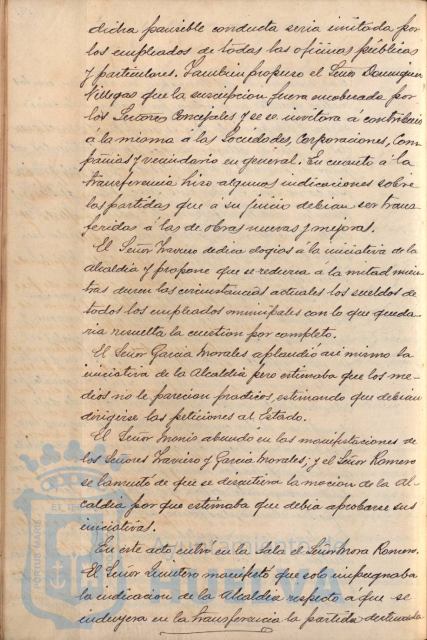 dicha plausible conducta seria imitada por
los empleados de todas las oficinas públicas
y particulares. Tambien propuso el Señor Dominguez
Villegas que la suscripcion fuera encabezada por
los Señores Concejales y se se invitara á contribuir
á la misma á las Sociedades, Corporaciones, Com
pañias y vecindario en general. En cuanto á la
transferencia hizo algunas indicaciones sobre
las partidas que á su juicio debian ser trans
feridas á las de obras nuevas y mejoras.
El Señor dedica elogios á la iniciativa de la
Alcaldia y propone que se reduzca á la mitad mien
tras duren las circunstancias actuales los sueldos de
todos los empleados municipales con lo que queda-
ria resuelta la cuestion por completo.
El Señor Garcia Morales aplaudió asi mismo la
iniciativa de la Alcaldia pero estimaba que los me-
dios no le parecian practicos, estimando que debian
dirigirse las peticiones al Estado.
El Señor abundó en las manifestaciones de
los Señores y Garcia Morales; y el Señor Romero
se lamentó de que se discutiera la mocion de la Al-
caldia por que estimaba que debia aprobarse sus
iniciativas.
En este acto entró en la Sala el Señor Mora Romero.
El Señor Quintero manifestó que solo impugnaba
la indicacion de la Alcaldia respecto á que se
incluyera en la transferencia la partida destinada
Ayuntamiento de